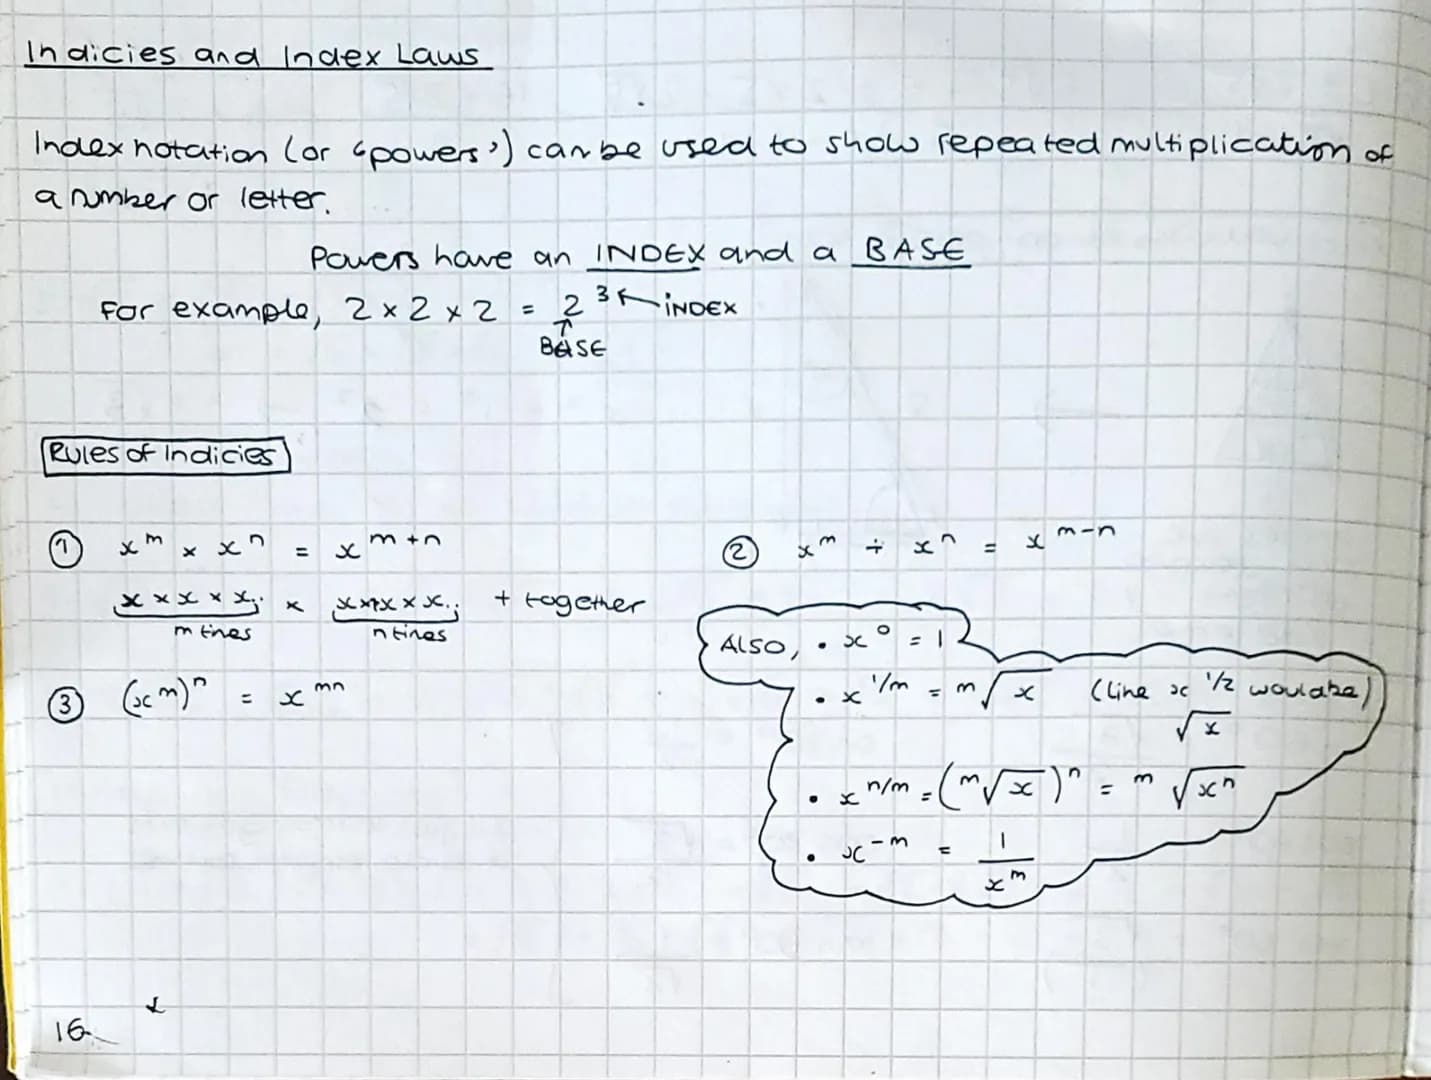 Indicies and Index Laws
Index notation (or 'powers') can be used to show repeated multiplication of
a number or letter.
Powers have an INDEX and a BASE
For example, 2 × 2 × 2 = 2³ ← INDEX
↑
BASE
Rules of Indicies
① xᵐ × xⁿ = xᵐ⁺ⁿ
② xᵐ ÷ xⁿ = xᵐ⁻ⁿ
x × x × x.. × x × x × x.. + together
m times n times
③ (xᵐ)ⁿ = xᵐⁿ
Also, • x⁰ = 1
• x^1/m = ᵐ√x (like x^1/2 would be)
√x
• x^n/m = (ᵐ√x)ⁿ = ᵐ√xⁿ
• x⁻ᵐ = 1/xᵐ
16